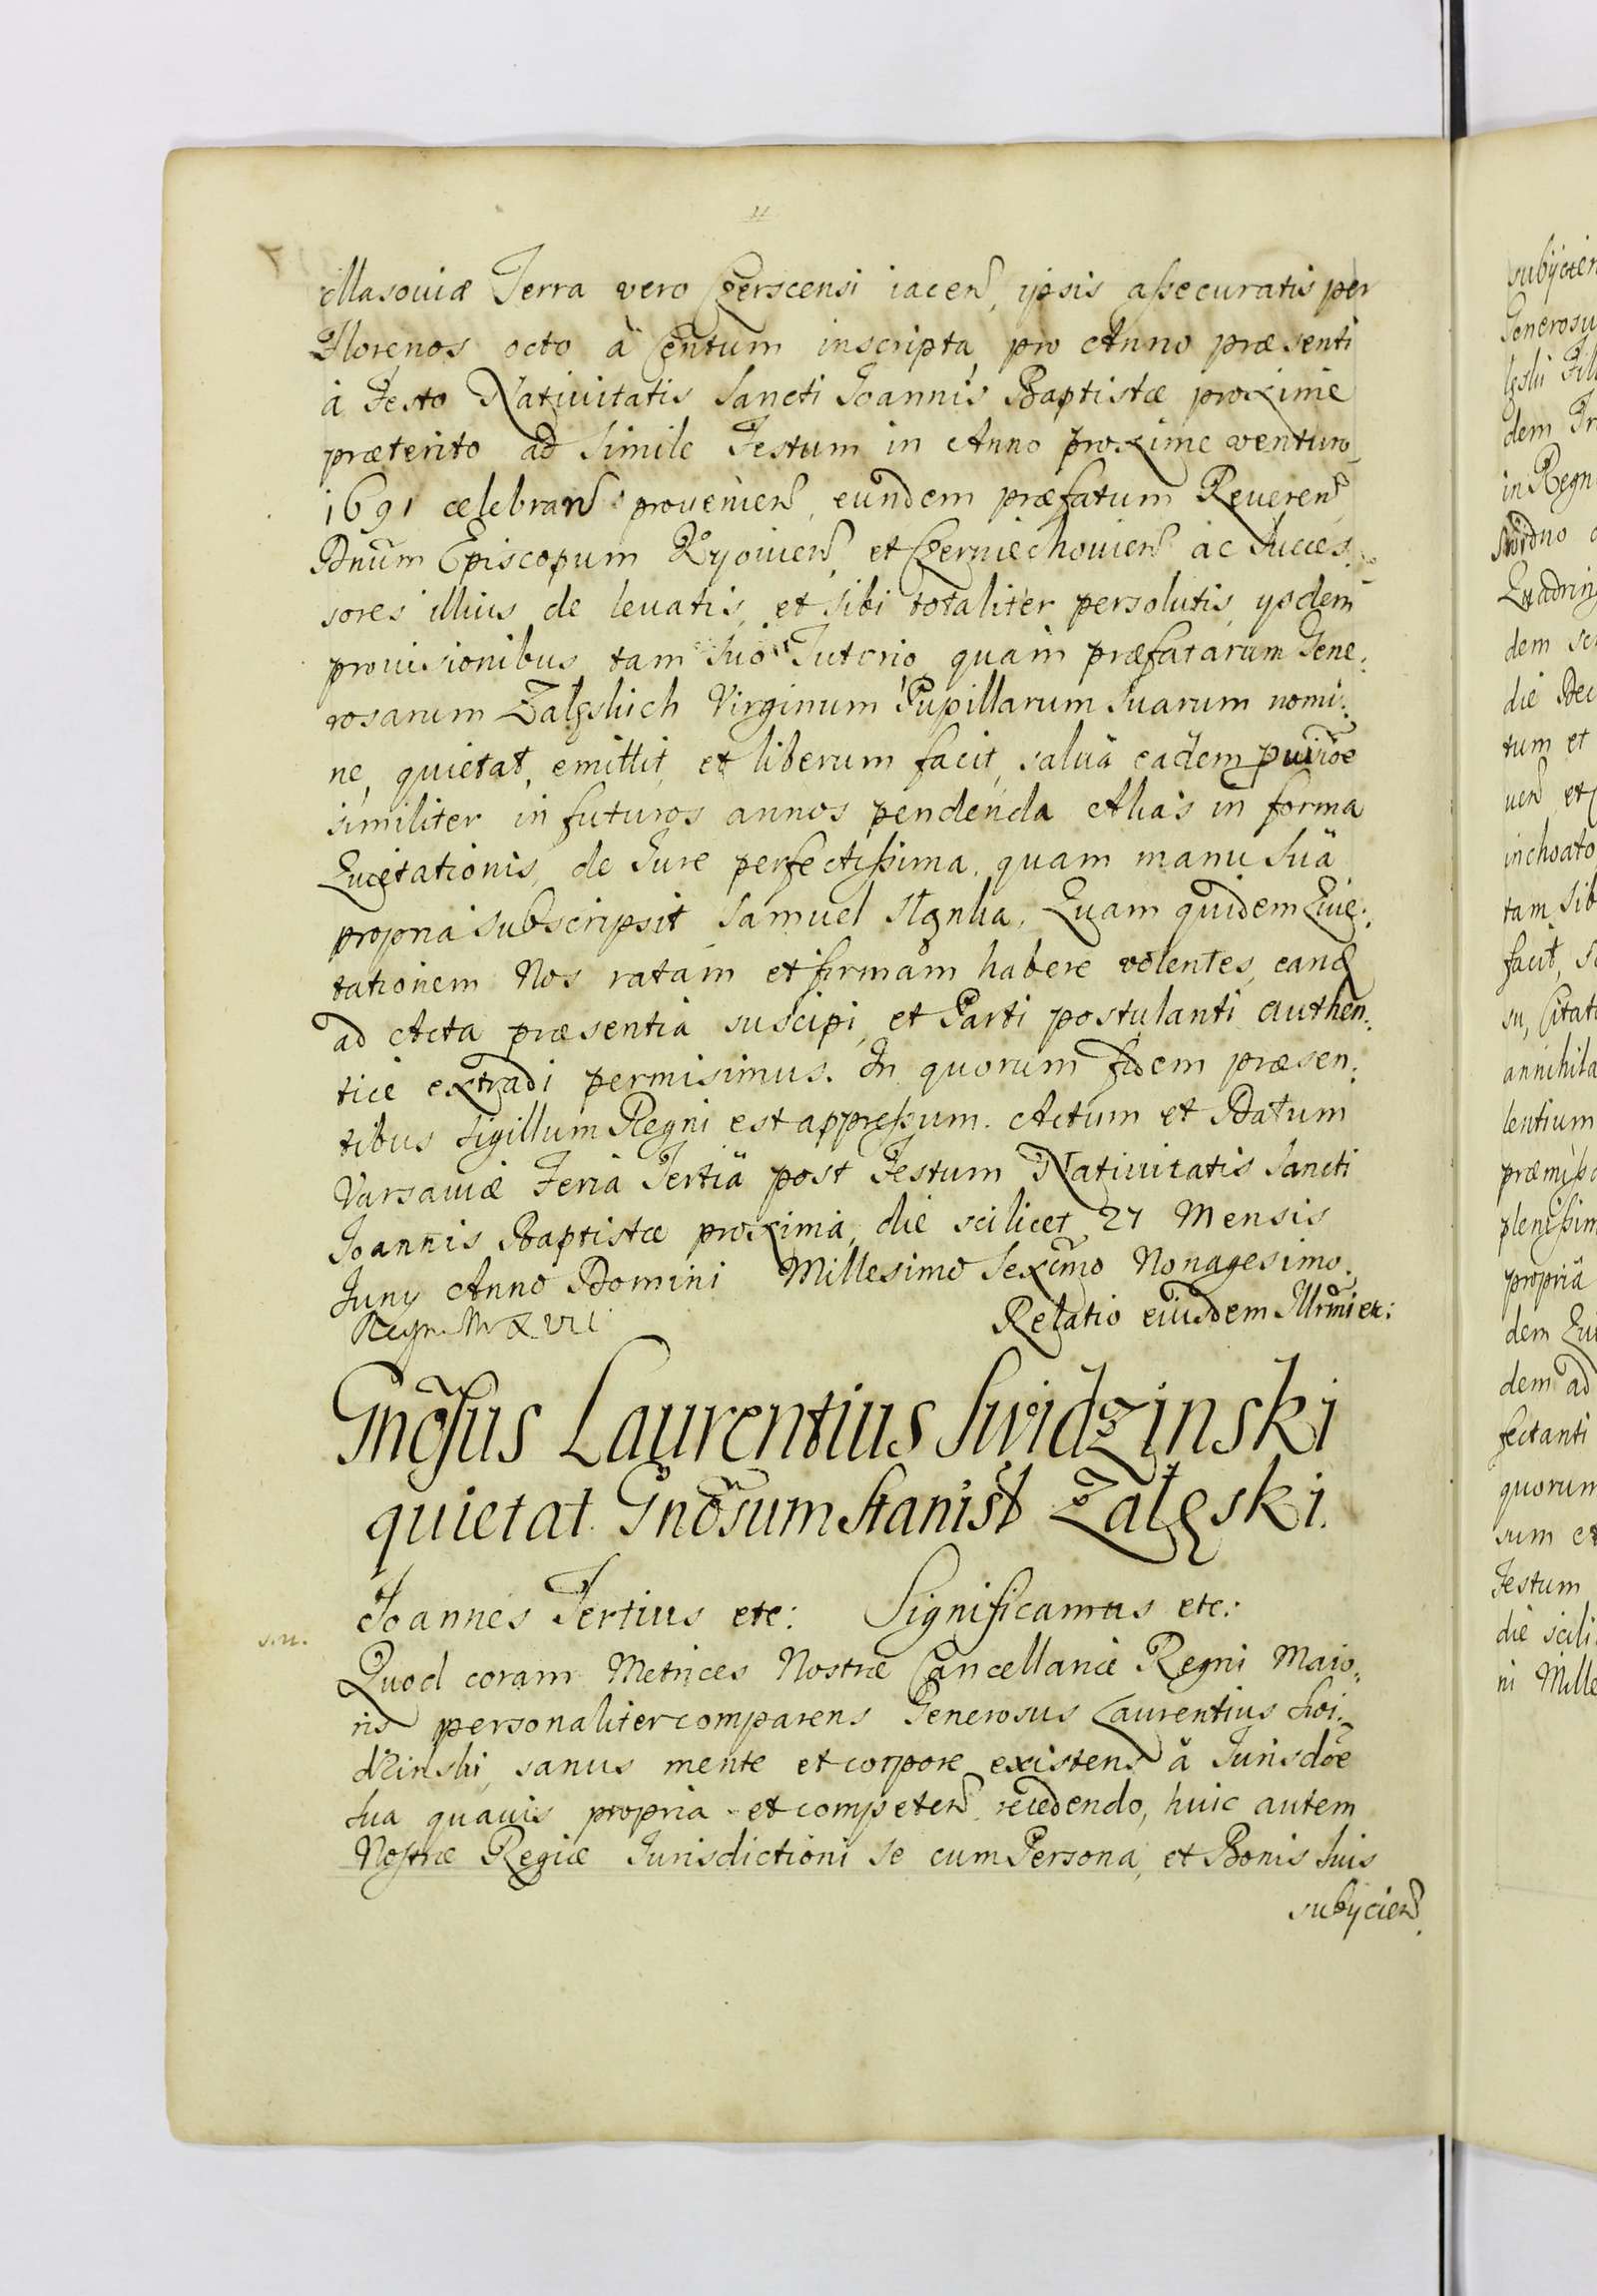 Masoviæ Terra vero Czerscensi iacen, ipsis assecuratis per
Florenos octo à Centum inscripta, pro Anno præsenti
à Festo Natiuitatis Sancti Joannis Baptistæ proxime
præterito ad simile Festum in Anno proxime venturo
1691 celebran: prouenien, eundem præfatum Reueren
Dnum Episcopum Kyouien, et Czerniechouien ac Succes
sores illius de leuatis, et sibi totaliter persolutis, ysdem
prouisionibus tam suo Tutorio quam præfatarum Gene:
rosarum Zalęskich Virginum Pupillarum Suarum nomi:
ne, quietat, emittit, et liberum facit, saluâ eâdem puisioe
similiter in futuros annos pendenda Alias in forma
Quietationis de Jure perfectissima. quam manu Suâ
propria subscripsit Samuel Stęnka. Quam quidem Quie:
tationem Nos ratam et firmam habere volentes, eand
ad Acta præsentia suscipi, et Parti postulanti authen:
tice extradi permisimus. In quorum fidem præsen:
tibus Sigillum Regni est appressum. Actum et Datum
Varsauiæ Feria Tertiâ post Festum Natiuitatis Sancti
Joannis Baptistæ proxima, die scilicet 27 Mensis
Juny Anno Domini Millesimo Sexcmo Nonagesimo.
Regn. Nri XVII
Relatio eiusdem Illrmi etc:
Gnosus Laurentius Swidzinski
quietat Gnosum Stanisł Zalęski.
Joannes Tertius etc: Significamus etc:
Quod coram Metrices Nostræ Cancellariæ Regni Maio:
ris personaliter comparens Generosus Laurentius Swi:
dzinski, sanus mente et corpore existens à Jurisdoe
sua quauis propria et competen recedendo, huic autem
Nostræ Regiæ Jurisdictioni se cum Persona, et Bonis Suis
subÿcien